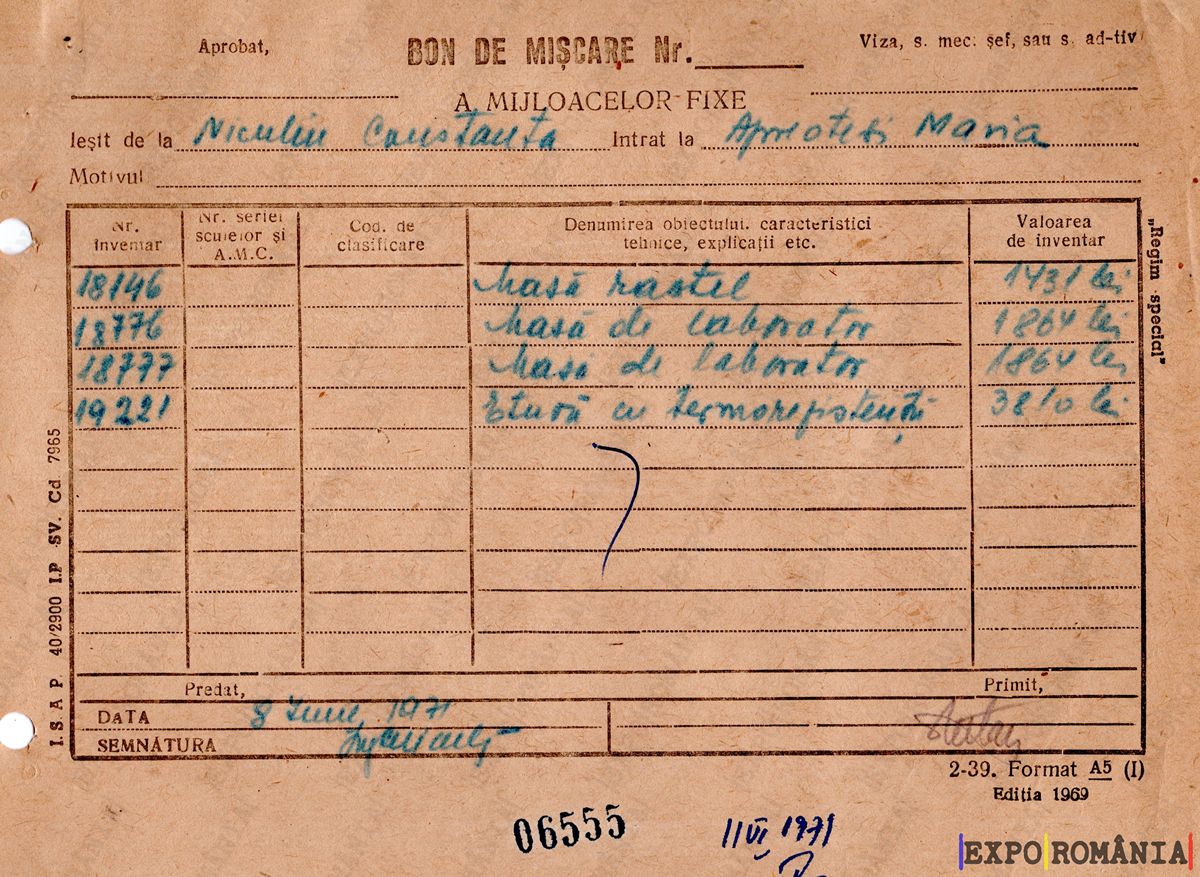 Aprobat,
BON DE MIȘCARE Nr.
Viza, s. mec. șef, sau s. ad-tiv
A MIJLOACELOR FIXE
Ieșit de la Niculiu Constanta Intrat la Maria
Motivul
Nr. inventar | Nr. seriei sculelor și A.M.C. | Cod. de clasificare | Denumirea obiectului. caracteristici tehnice, explicații etc. | Valoarea de inventar
18146 Masă rastel 1431 lei
18776 Masă de laborator 1864 lei
18777 Masă de laborator 1864 lei
19221 Etuvă cu termorezistență 3810 lei
Predat, Primit,
DATA 8 Iunie 1971
SEMNĂTURA
2-39. Format A5 (I)
Editia 1969
„Regim special”
I.S.A.P. 40/2900 I.P. SV. Cd 7965
06555
11 VI 1971
EXPO ROMÂNIA